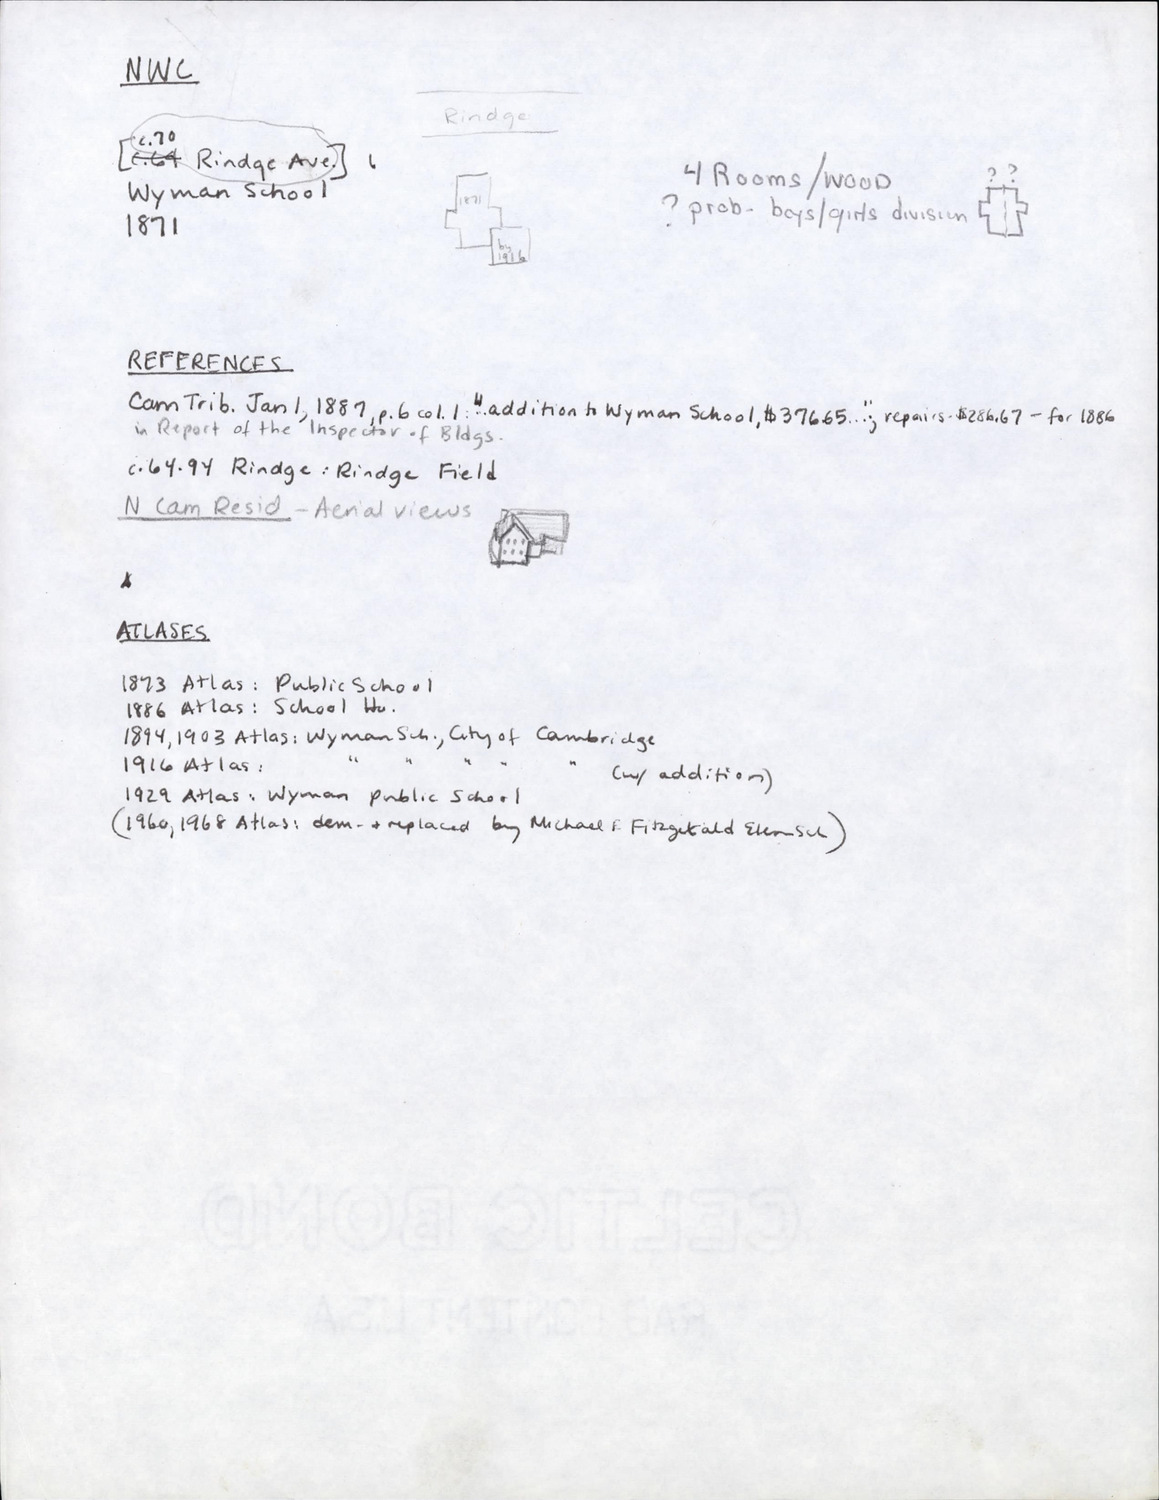 NWC
Rindge
c.70
[c.64 Rindge Ave.]
Wyman School
1871
1871
by
1916
4 Rooms/WOOD
? prob- boys/girls division
? ?
REFERENCES
Cam Trib. Jan 1, 1887, p.6 col. 1: "..addition to Wyman School, $376.65..."; repairs-$286.67 - for 1886
in Report of the Inspector of Bldgs.
c.64-94 Rindge: Rindge Field
N Cam Resid - Aerial views
ATLASES
1873 Atlas: Public School
1886 Atlas: School Ho.
1894, 1903 Atlas: Wyman Sch., City of Cambridge
1916 Atlas: " " " " " (w/ addition)
1929 Atlas: Wyman Public School
(1960, 1968 Atlas: dem. + replaced by Michael E Fitzgerald Elem Sch)
CELTIC BOND
RAG CONTENT U.S.A